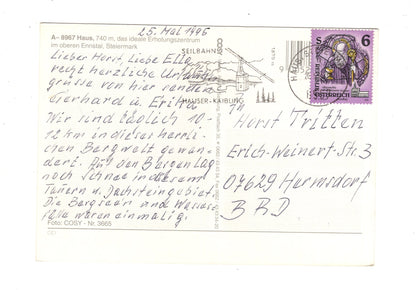 25. Mai 1995
A– 8967 Haus, 740 m, das ideale Erholungszentrum
im oberen Ennstal, Steiermark
Lieber Horst, Liebe Ella
recht herzliche Urlaubs-
grüsse von hier senden
Gerhard u. Erika
Wir sind täglich 10-
12 km in dieser herrli-
chen Bergwelt gewan-
dert. Auf den Bergen lag
noch Schnee in diesem
Tauern u. Dachsteingebiet.
Die Bergseen und Wasser-
fälle waren einmalig.
Foto: COSY - Nr. 3665
SEILBAHN
HAUSER-KAIBLING
HAUS
6 S
REPUBLIK
ÖSTERREICH
An
Horst Tritten
Erich-Weinert-Str. 3
07629 Hermsdorf
BRD